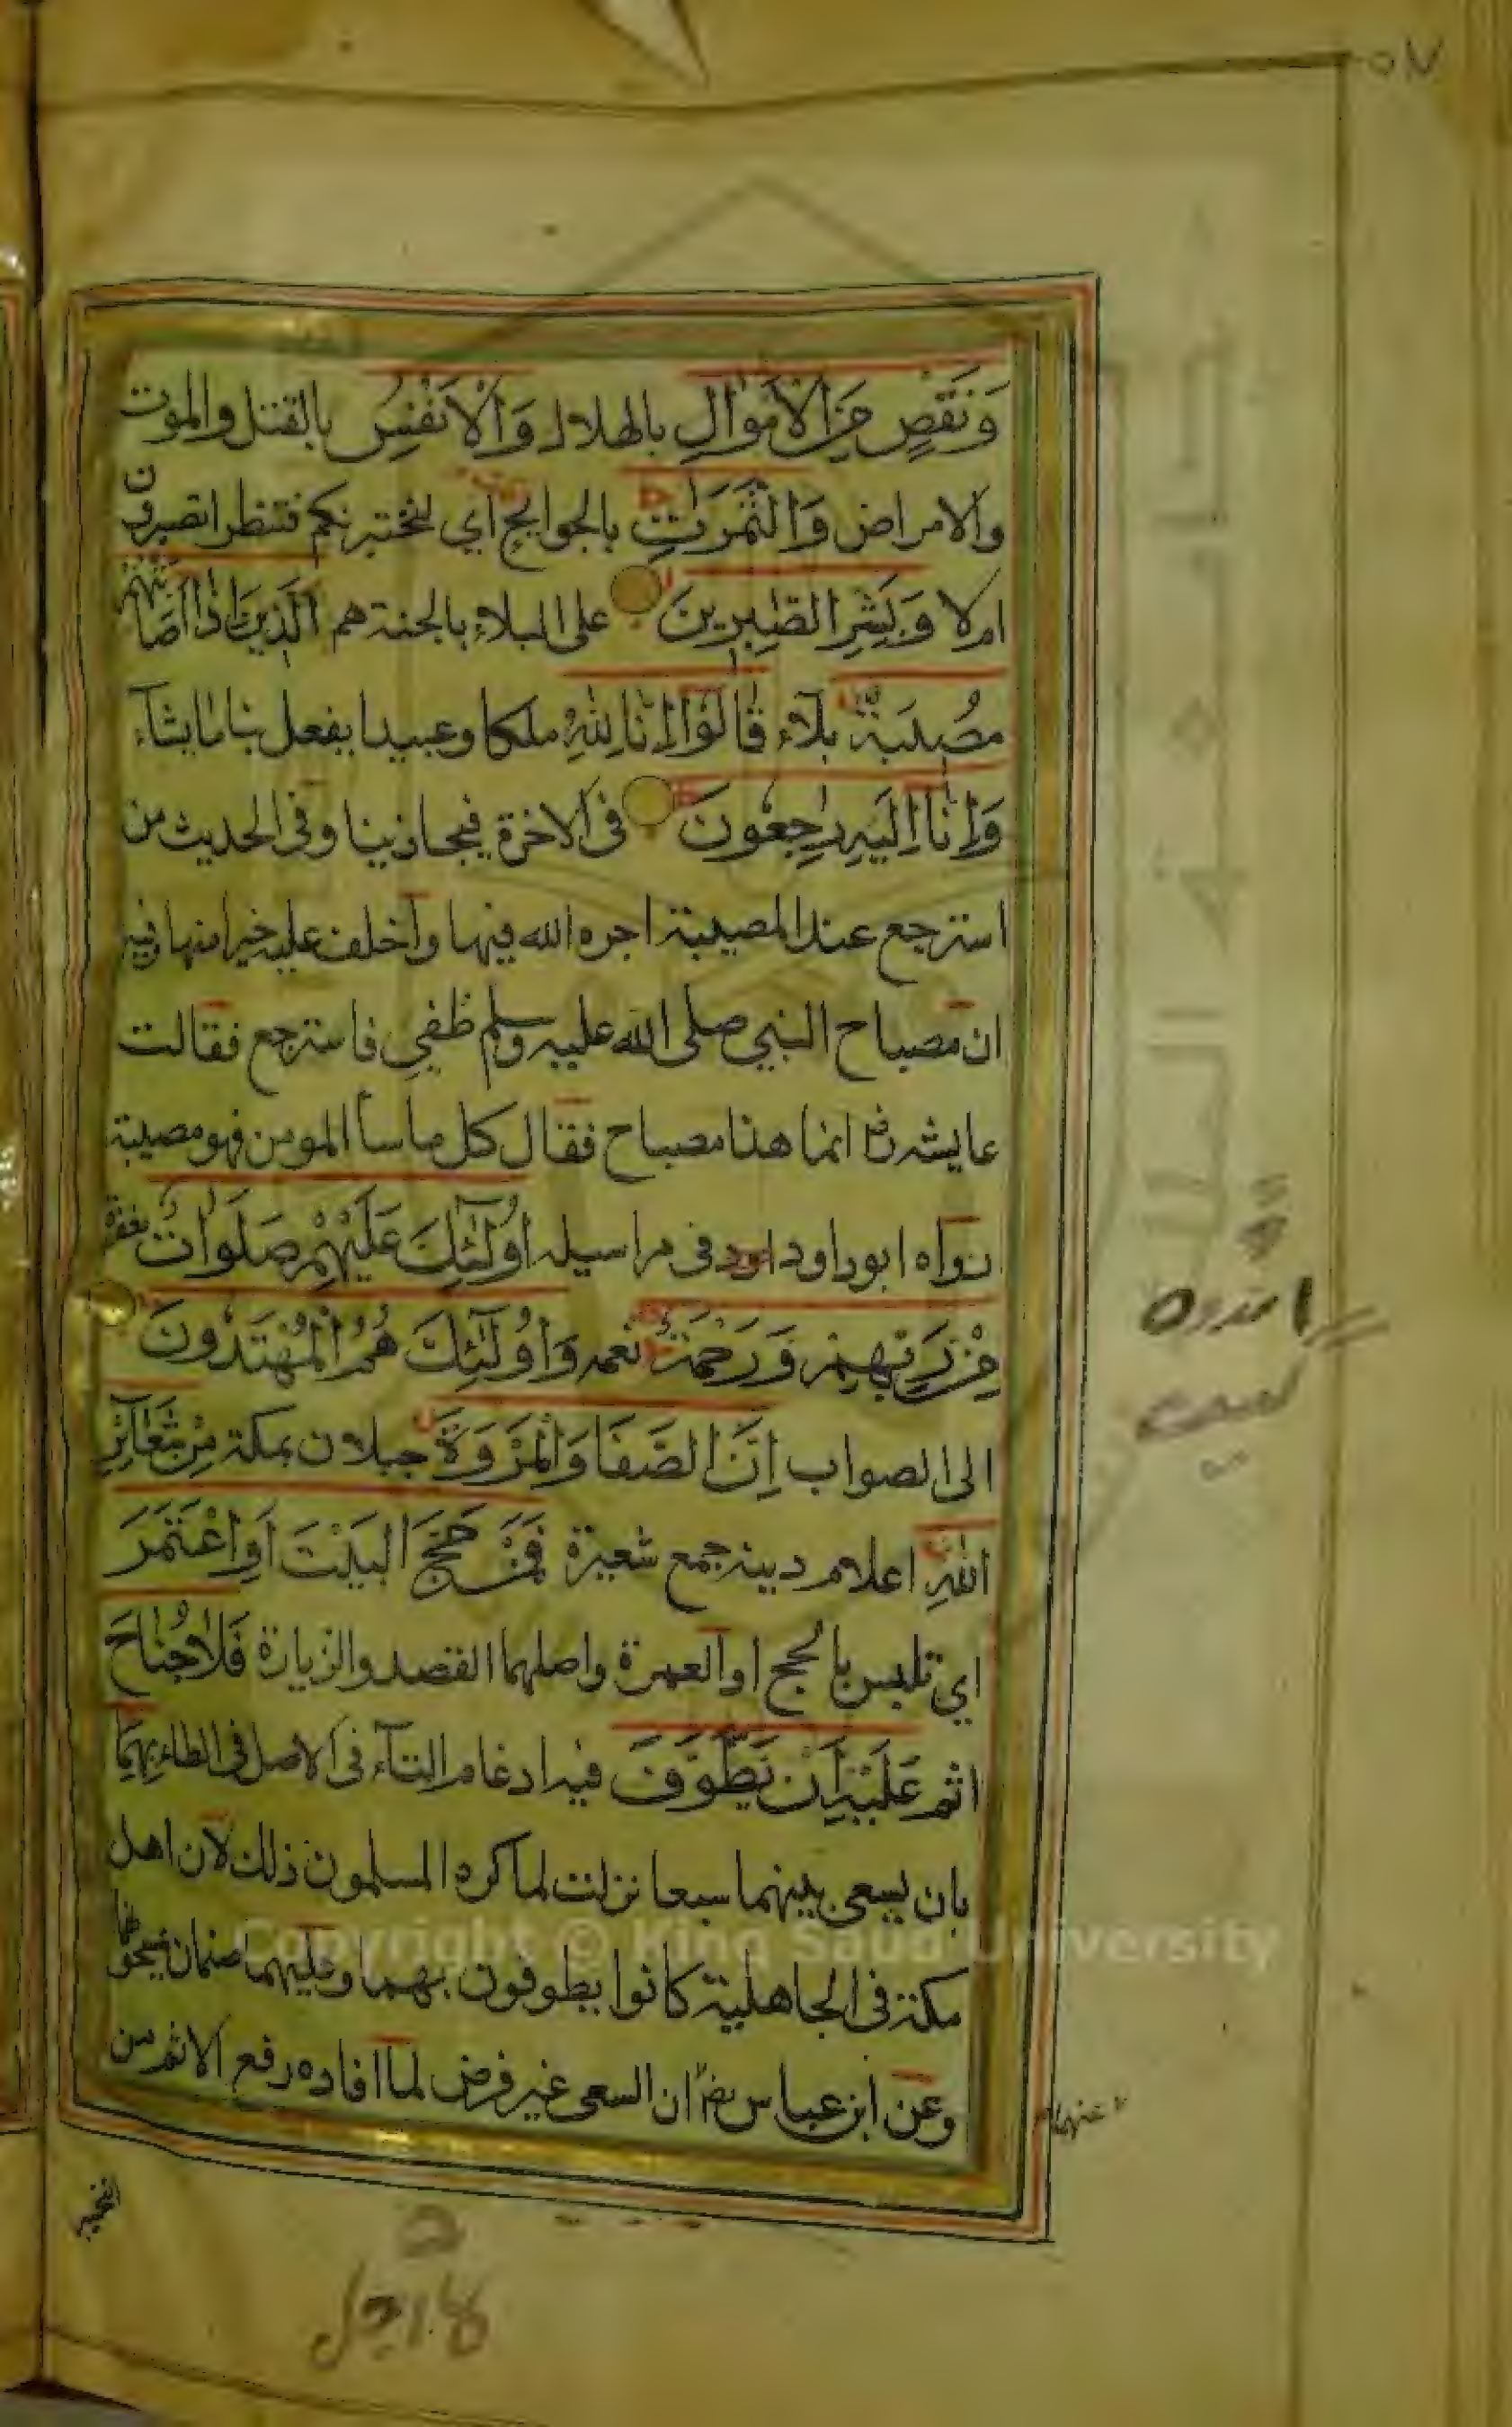 ٥٧
وَنَقْصٍ مِّنَ الْاَمْوَالِ بالهلاك وَالْاَنْفُسِ بالقتل والموت
والامراض وَالثَّمَرَاتِ بالجوايح اي لنختبرنكم فننظر اتصبرون
ام لا وَبَشِّرِ الصّٰبِرِينَ على البلاء بالجنة هم الَّذِينَ اِذَا اَصَابَتْهُمْ
مُصِيبَةٌ بلاء قَالُوْا اِنَّا لِلّٰهِ ملكا وعبيدا يفعل بنا ما يشآء
وَاِنَّا اِلَيْهِ رٰجِعُونَ فى الاخرة فيجازينا وفى الحديث من
استرجع عند المصيبة اجره الله فيها واخلف عليه خيرا منها وفيه
ان مصباح النبي صلى الله عليه وسلم طفي فاسترجع فقالت
عايشه رض انما هذا مصباح فقال كل ما سآ المومن فهو مصيبة
رواه ابو داود فى مراسيله اُولٰٓئِكَ عَلَيْهِمْ صَلَوَاتٌ مغفرة
مِّنْ رَبِّهِمْ وَرَحْمَةٌ نعمه وَاُولٰٓئِكَ هُمُ الْمُهْتَدُونَ
الى الصواب اِنَّ الصَّفَا وَالْمَرْوَةَ جبلان بمكة مِنْ شَعَآئِرِ
اللّٰهِ اعلام دينه جمع شعيرة فَمَنْ حَجَّ الْبَيْتَ اَوِ اعْتَمَرَ
اي تلبس بالحج او العمرة واصلهما القصد والزيارة فَلَا جُنَاحَ
اثم عَلَيْهِ اَنْ يَطَّوَّفَ فيه ادغام التآء فى الاصل فى الطاء بِهِمَا
بان يسعى بينهما سبعا نزلت لما كره المسلمون ذلك لان اهل
مكة فى الجاهلية كانوا يطوفون بهما وعليهما صنمان يمسحونهما
وعن ابن عباس رض ان السعى غير فرض لما افاده رفع الاثم من
عنهما
التخيير
Copyright © King Saud University